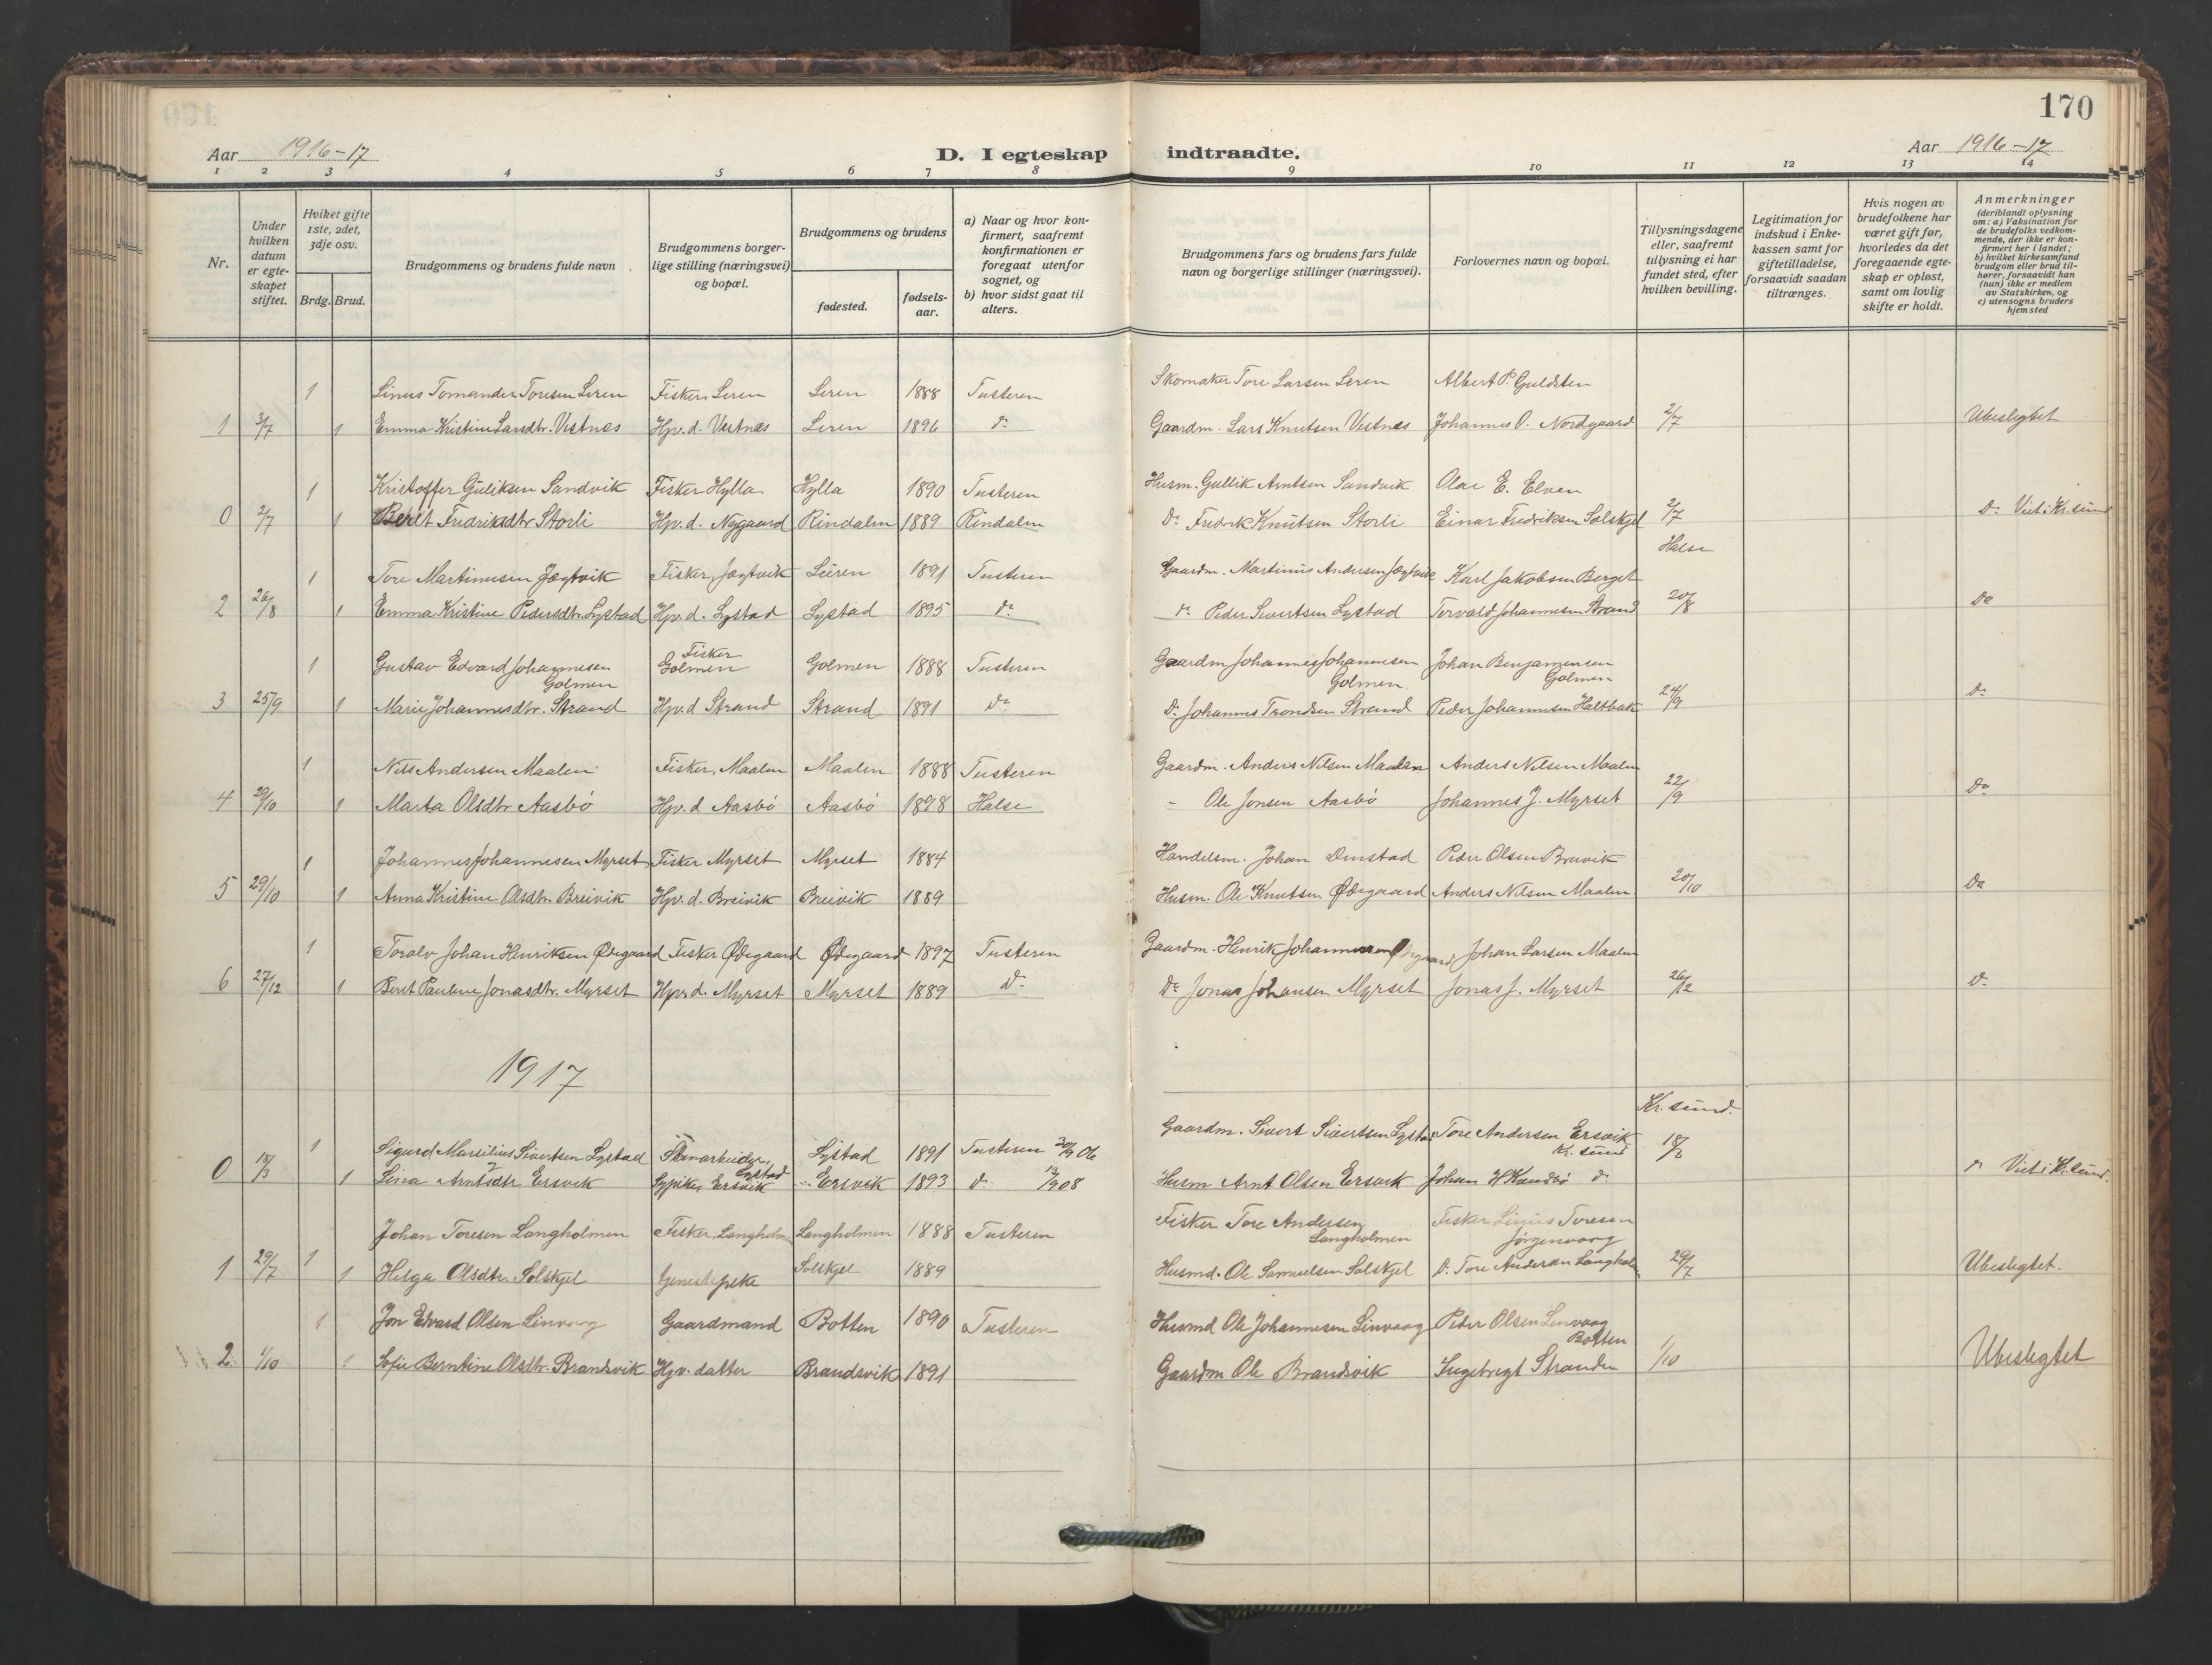 170
Aar 1916-17
D. I egteskap indtraadte.
Aar 1916-17
1 2 3 4 5 6 7 8 9 10 11 12 13 14
Nr.
Under hvilken datum er egteskapet stiftet.
Hviket gifte 1ste, 2det, 3dje osv.
Brdg. Brud.
Brudgommens og brudens fulde navn
Brudgommens borgerlige stilling (næringsvei) og bopæl.
Brudgommens og brudens
fødested.
fødselsaar.
a) Naar og hvor konfirmert, saafremt konfirmationen er foregaat utenfor sognet, og
b) hvor sidst gaat til alters.
Brudgommens fars og brudens fars fulde navn og borgerlige stillinger (næringsvei).
Forlovernes navn og bopæl.
Tillysningsdagene eller, saafremt tillysning ei har fundet sted, efter hvilken bevilling.
Legitimation for indskud i Enkekassen samt for giftetilladelse, forsaavidt saadan tiltrænges.
Hvis nogen av brudefolkene har været gift før, hvorledes da det foregaaende egteskap er opløst, samt om lovlig skifte er holdt.
Anmerkninger (deriblandt oplysning om: a) Vaksination for de brudefolks vedkommende, der ikke er konfirmert her i landet; b) hvilket kirkesamfund brudgom eller brud tilhører, forsaavidt han (hun) ikke er medlem av Statskirken, og c) utensogns bruders hjemsted
1 Linus Tomander Toresen Leren Fisker, Leren Leren 1888 Tusteren Skomaker Tore Larsen Leren Albert P. Guldsten
1 3/7 1 Emma Kristine Larsdtr. Vestnæs Hjv. d. Vestnæs Leren 1896 do Gaardm. Lars Knutsen Vestnæs Johannes O. Nordgaard 2/7 Ubeslegtet
1 Kristoffer Guliksen Sandvik Fisker Hylla Hylla 1890 Tusteren Husm. Gullik Arntsen Sandvik Olae E. Elven
0 2/7 1 Beret Fredriksdtr Storli Hjv. d. Nygaard Rindalen 1889 Rindalen Do Fredrik Knutsen Storli Einar Fredriksen Solskjel 2/7 Do Viet i Kr.sund
Halse
1 Tore Martinusen Jægtvik Fisker, Jægtvik Leiren 1891 Tusteren Gaardm. Martinus Andersen Jægtvik Karl Jakobsen Berget
2 26/8 1 Emma Kristine Pedersdtr. Lystad Hjv. d. Lystad Lystad 1895 do do Peder Sivertsen Lystad Torvald Johannesen Strand 20/8 Do
1 Gustav Edvard Johannesen Golmen Fisker Golmen Golmen 1888 Tusteren Gaardm Johannes Johannesen Golmen Johan Benjaminsen Golmen
3 25/9 1 Marie Johannesdtr. Strand Hjv. d Strand Strand 1891 do Do Johannes Trondsen Strand Peder Johannesen Haltbak 24/9 do
1 Nils Andersen Maalen Fisker, Maalen Maalen 1888 Tusteren Gaardm. Anders Nilsen Maalen Anders Nilsen Maalen
4 29/10 1 Marta Olsdtr Aasbö Hjv. d Aasbö Aasbö 1898 Halse - Ole Jonsen Aasbö Johannes J. Myrset 22/9 Do
1 Johannes Johannesen Myrset Fisker Myrset Myrset 1884 Handelsm. Johan Peder Olsen Breivik
5 29/10 1 Anna Kristine Olsdtr. Breivik Hjv. d. Breivik Breivik 1889 Husm. Ole Knutsen Ødegaard Anders Nilsen Maalen 20/10 Do
1 Toralv Johan Henriksen Ødegaard Fisker Ødegaard Ødegaard 1897 Tusteren Gaardm. Henrik Johannesen Ødegaard Johan Larsen Maalen
6 27/12 1 Beret Pauline Jonasdtr. Myrset Hjv. d. Myrset Myrset 1889 do Do Jonas Johansen Myrset Jonas J. Myrset 26/12 do
1917
Kr. sund.
1 Sigurd Marsilius Sivertsen Lystad Stenarbeider, Lystad Lystad 1891 Tusteren 30/9 06 Gaardm. Sivert Sivertsen Lystad Tore Andersen Ersvik Kr. sund 18/3
0 18/3 1 Lina Arntsdtr Ersvik Sypike, Ersvik Ersvik 1893 do 13/9 08 Husm Arnt Olsen Ersvik Johan H Kandbö do do Viet i Kr.sund.
Johan Toresen Langholmen Fisker, Langholmen Langholmen 1888 Tusteren Fisker Tore Andersen Langholmen Fisker Linus Toresen Jörgenvaag
1 29/7 1 1 Helga Olsdtr. Solskjel Solskjel 1889 Husmd. Ole Samuelsen Solskjel Do Tore Andersen Langholm 29/7 Ubeslegtet.
1 Jon Edvard Olsen Linvaag Gaardmand Botten 1890 Tusteren Husmd Ole Johannesen Linvaag Peder Olsen Linvaag Botten
2 1/10 1 Sofie Berntine Olsdtr. Brandsvik Hjv. datter Brandsvik 1891 Gaardm Ole Brandsvik Ingebregt Stranden 1/10 Ubeslegtet